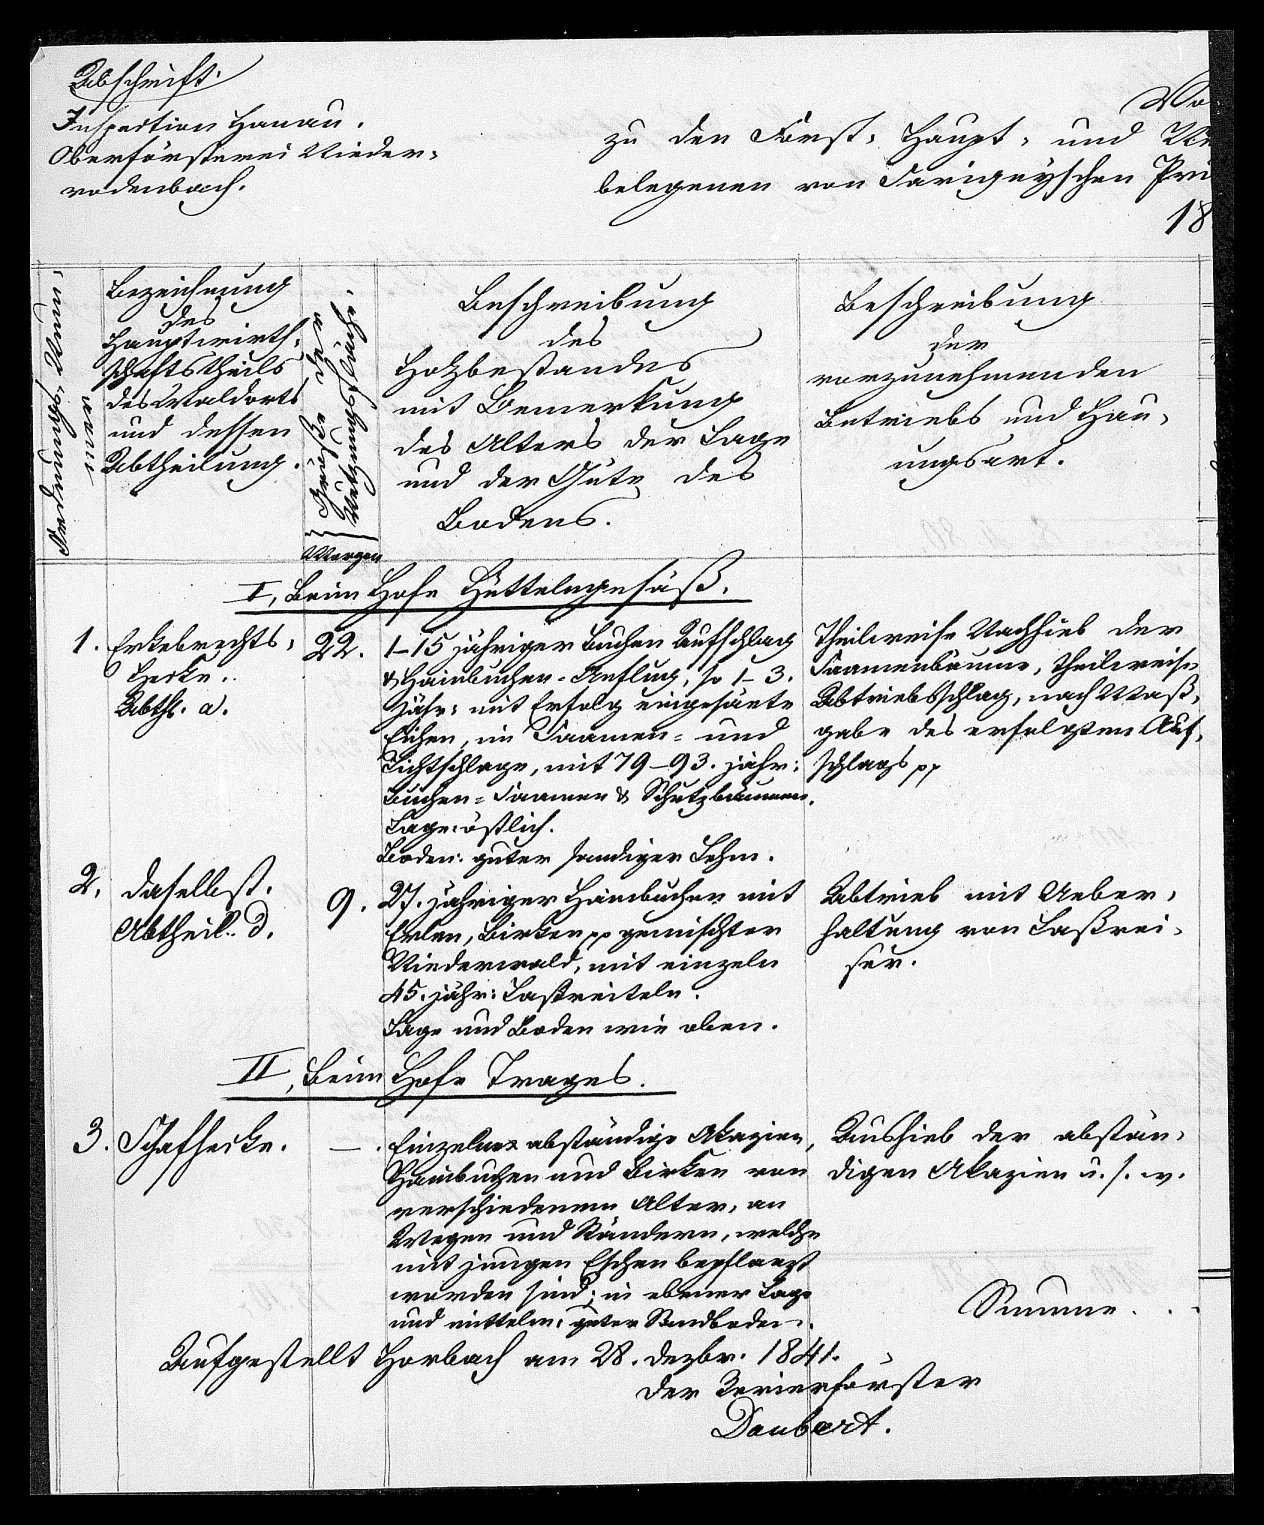 Abschrift.
Inspection Hanau.
Oberförsterei Nieder-
rodenbach.
Vo
zu den Forst- Haupt- und Ne
belegenen von Savignyschen Pri
18
Ordnungs Num-
mern
Bezeichnung
des
Hauptwirth-
schaftstheils
des Waldorts
und dessen
Abtheilung.
Morgen
Beschreibung
des
Holzbestandes
mit Bemerkung
des Alters der Lage
und der Güte des
Bodens.
Beschreibung
der
vorzunehmenden
Betriebs und Hau-
ungsart.
I, Beim Hofe Hüttelngesäß.
1. Erkebrechts-
hecke.
Abthl. a.
22.
1-15 jähriger Buchen Aufschlag
& Hainbuchen-Anflug, so 1-3.
jähr: mit Erfolg eingesäete
Eichen, im Saamen- und
Lichtschlage, mit 79-93. jähr:
Buchen-Saamen & Schutzbäumen.
Lage: östlich.
Boden: guter sandiger Lehm.
Theilweise Nachhieb der
Saamenbäume, theilweise
Abtriebsschlag, nach Maß-
gabe des erfolgten Auf-
schlags pp
2. Daselbst.
Abtheil. d.
9.
27. jähriger Hainbuchen mit
Erlen, Birken pp gemischter
Niederwald, mit einzeln
45. jähr: Laßreiteln.
Lage und Boden wie oben.
Abtrieb mit Ueber-
haltung von Laßrei-
ser.
II, Beim Hofe Trages.
3. Schafhecke.
—.
Einzelne abständige Akazien,
Hainbuchen und Birken von
verschiedenem Alter, an
Wegen und Rändern, welche
mit jungen Eschen bepflanzt
worden sind; in ebener Lage
und mittelm: guter Sandboden.
Aushieb der abstän-
digen Akazien u. s. w.
Summe . . .
Aufgestellt Horbach am 28. Dezbr. 1841.
Der Revierförster
Daubert.